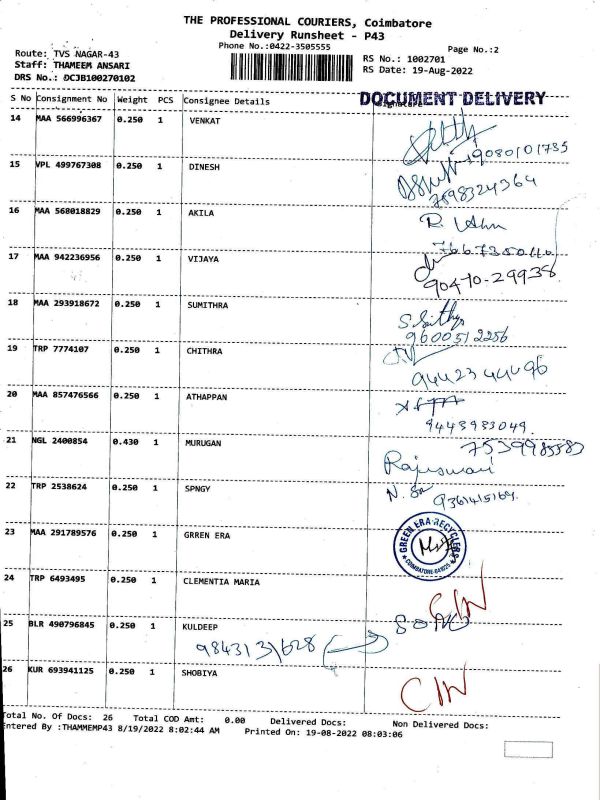 THE PROFESSIONAL COURIERS, Coimbatore
Delivery Runsheet - P43
Phone No.:0422-3505555
Page No.:2
Route: TVS NAGAR-43
RS No.: 1002701
Staff: THAMEEM ANSARI
RS Date: 19-Aug-2022
DRS No.: DCJB100270102
DOCUMENT DELIVERY
S No Consignment No Weight PCS Consignee Details Signature
14 MAA 566996367 0.250 1 VENKAT
9080101735
15 VPL 499767308 0.250 1 DINESH
7598324364
16 MAA 568018829 0.250 1 AKILA
R.
17 MAA 942236956 0.250 1 VIJAYA
90470-29938
18 MAA 293918672 0.250 1 SUMITHRA
9600512256
19 TRP 7774107 0.250 1 CHITHRA
9442344496
20 MAA 857476566 0.250 1 ATHAPPAN
9443933049.
21 NGL 2400854 0.430 1 MURUGAN
7539985583
Rajeswari
22 TRP 2538624 0.250 1 SPNGY
23 MAA 291789576 0.250 1 GRREN ERA
GREEN ERA RECYCLERS
COIMBATORE-641025
24 TRP 6493495 0.250 1 CLEMENTIA MARIA
25 BLR 490796845 0.250 1 KULDEEP
9843131628
26 KUR 693941125 0.250 1 SHOBIYA
Total No. Of Docs: 26 Total COD Amt: 0.00 Delivered Docs: Non Delivered Docs:
Entered By :THAMMEMP43 8/19/2022 8:02:44 AM Printed On: 19-08-2022 08:03:06